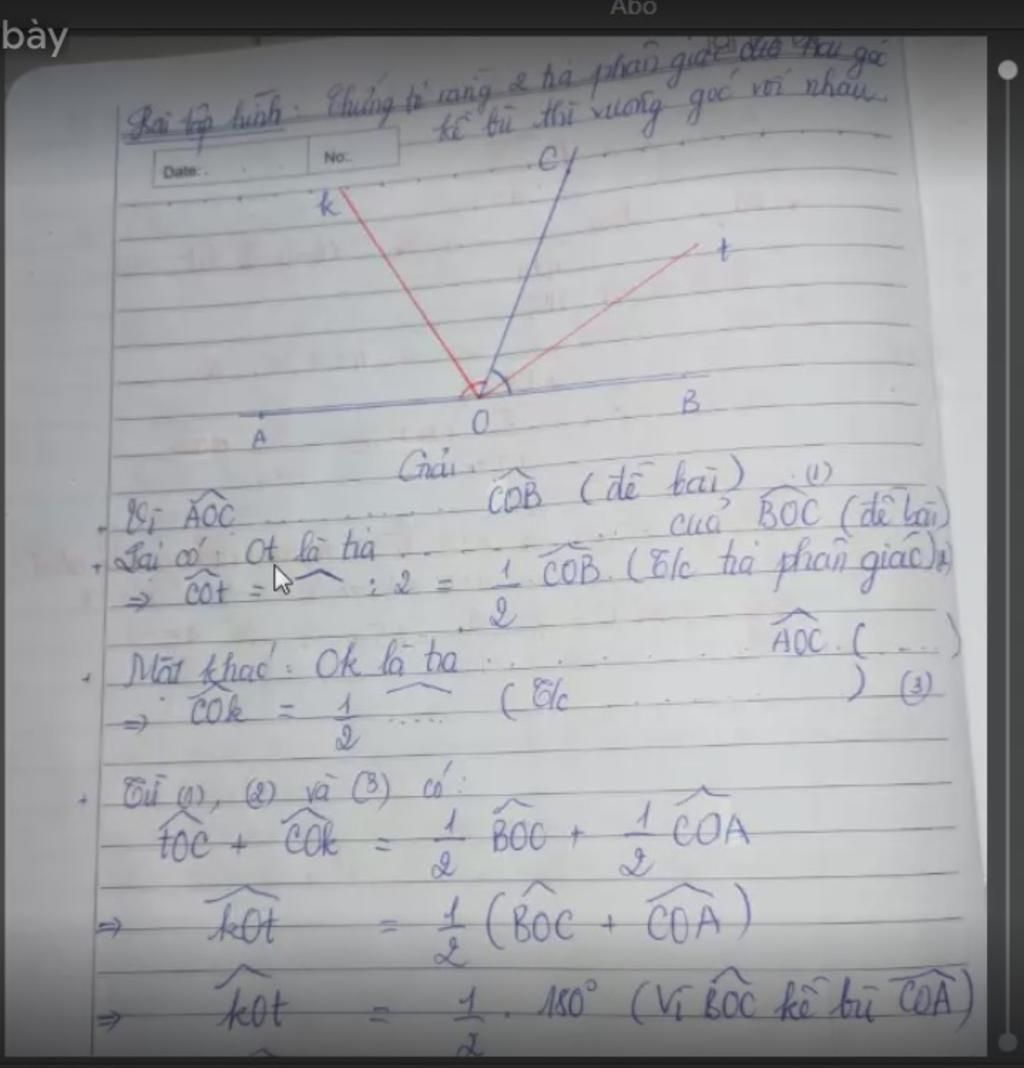 Abo
bày
Bài tập hình: Chứng tỏ rằng 2 tia phân giác của hai góc
kề bù thì vuông góc với nhau.
Date: No:
k
C
t
A
O
B
Giải
Vì AOC ............ COB (đề bài) (1)
Lại có: Ot là tia ............ của BOC (đề bài)
⇒ COt = : 2 = 1/2 COB. (T/c tia phân giác) (2)
Mặt khác: Ok là tia ............ AOC. (....)
⇒ COk = 1/2 ..... (T/c ) (3)
Từ (1), (2) và (3) có:
tOC + COk = 1/2 BOC + 1/2 COA
⇒ kOt = 1/2 (BOC + COA)
⇒ kOt = 1/2 . 180° (Vì BOC kề bù COA)